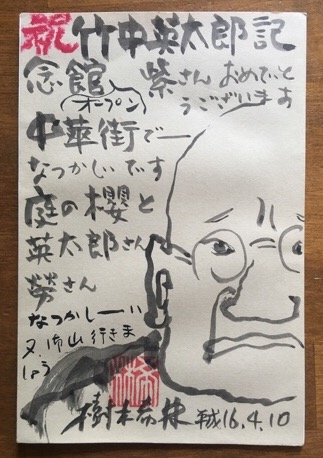 祝竹中英太郎記
念館 紫さん おめでと
(オープン) うございます
中華街でー
なつかしいです
庭の櫻と
英太郎さん
勞さん
なつかしーい
又、山行きま
しょう
樹木希林 平成16.4.10